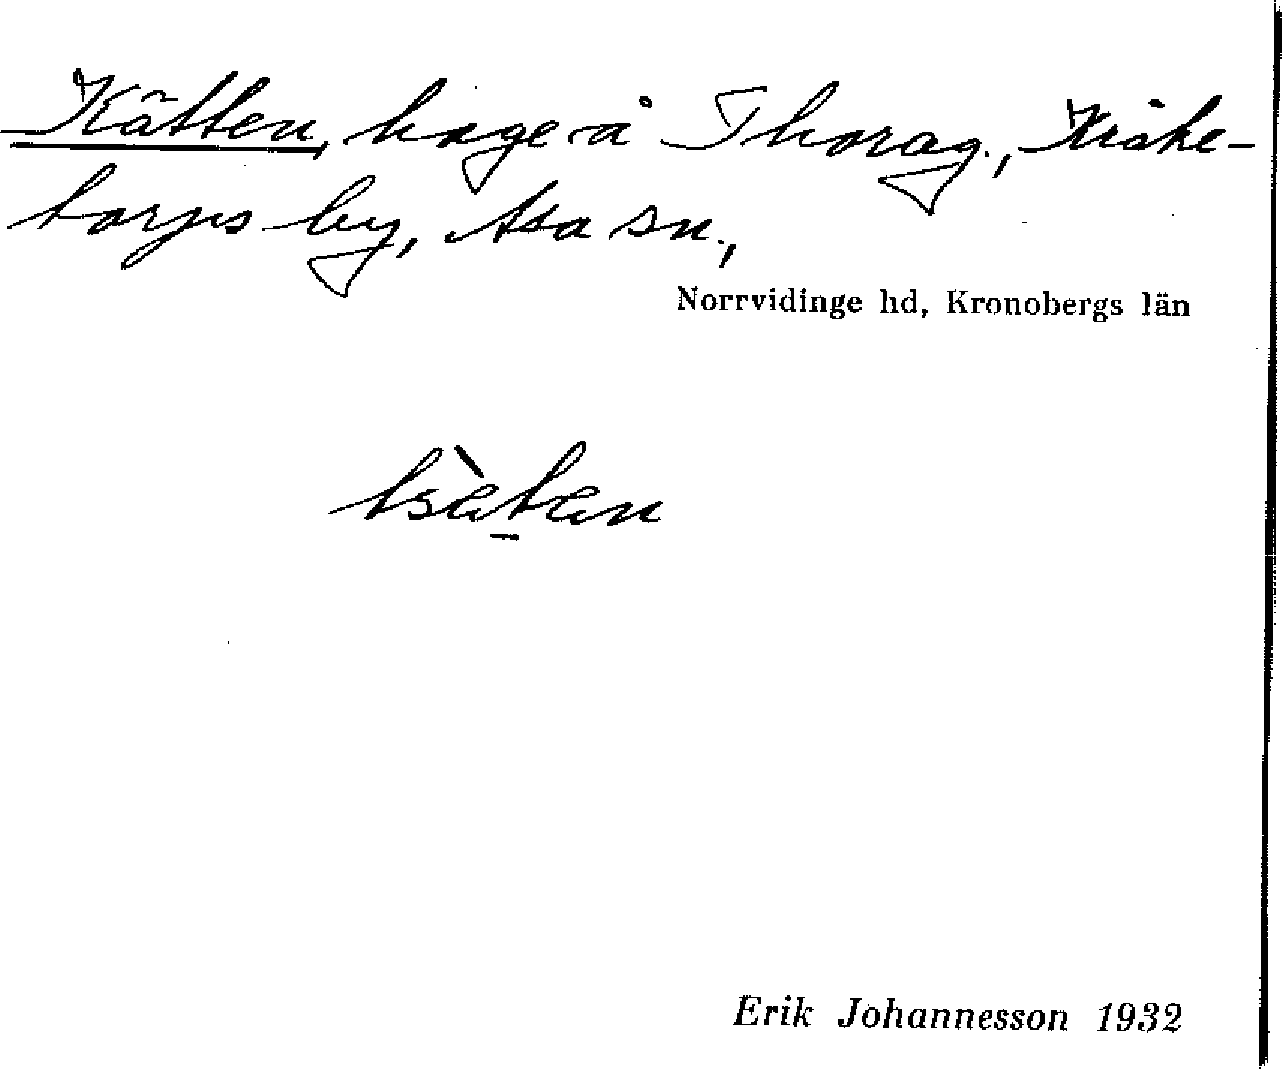 Kätten, hage å Thorag., Kråke-
torps by, Asa sn.,
Norrvidinge hd, Kronobergs län
tsàtan
Erik Johannesson 1932